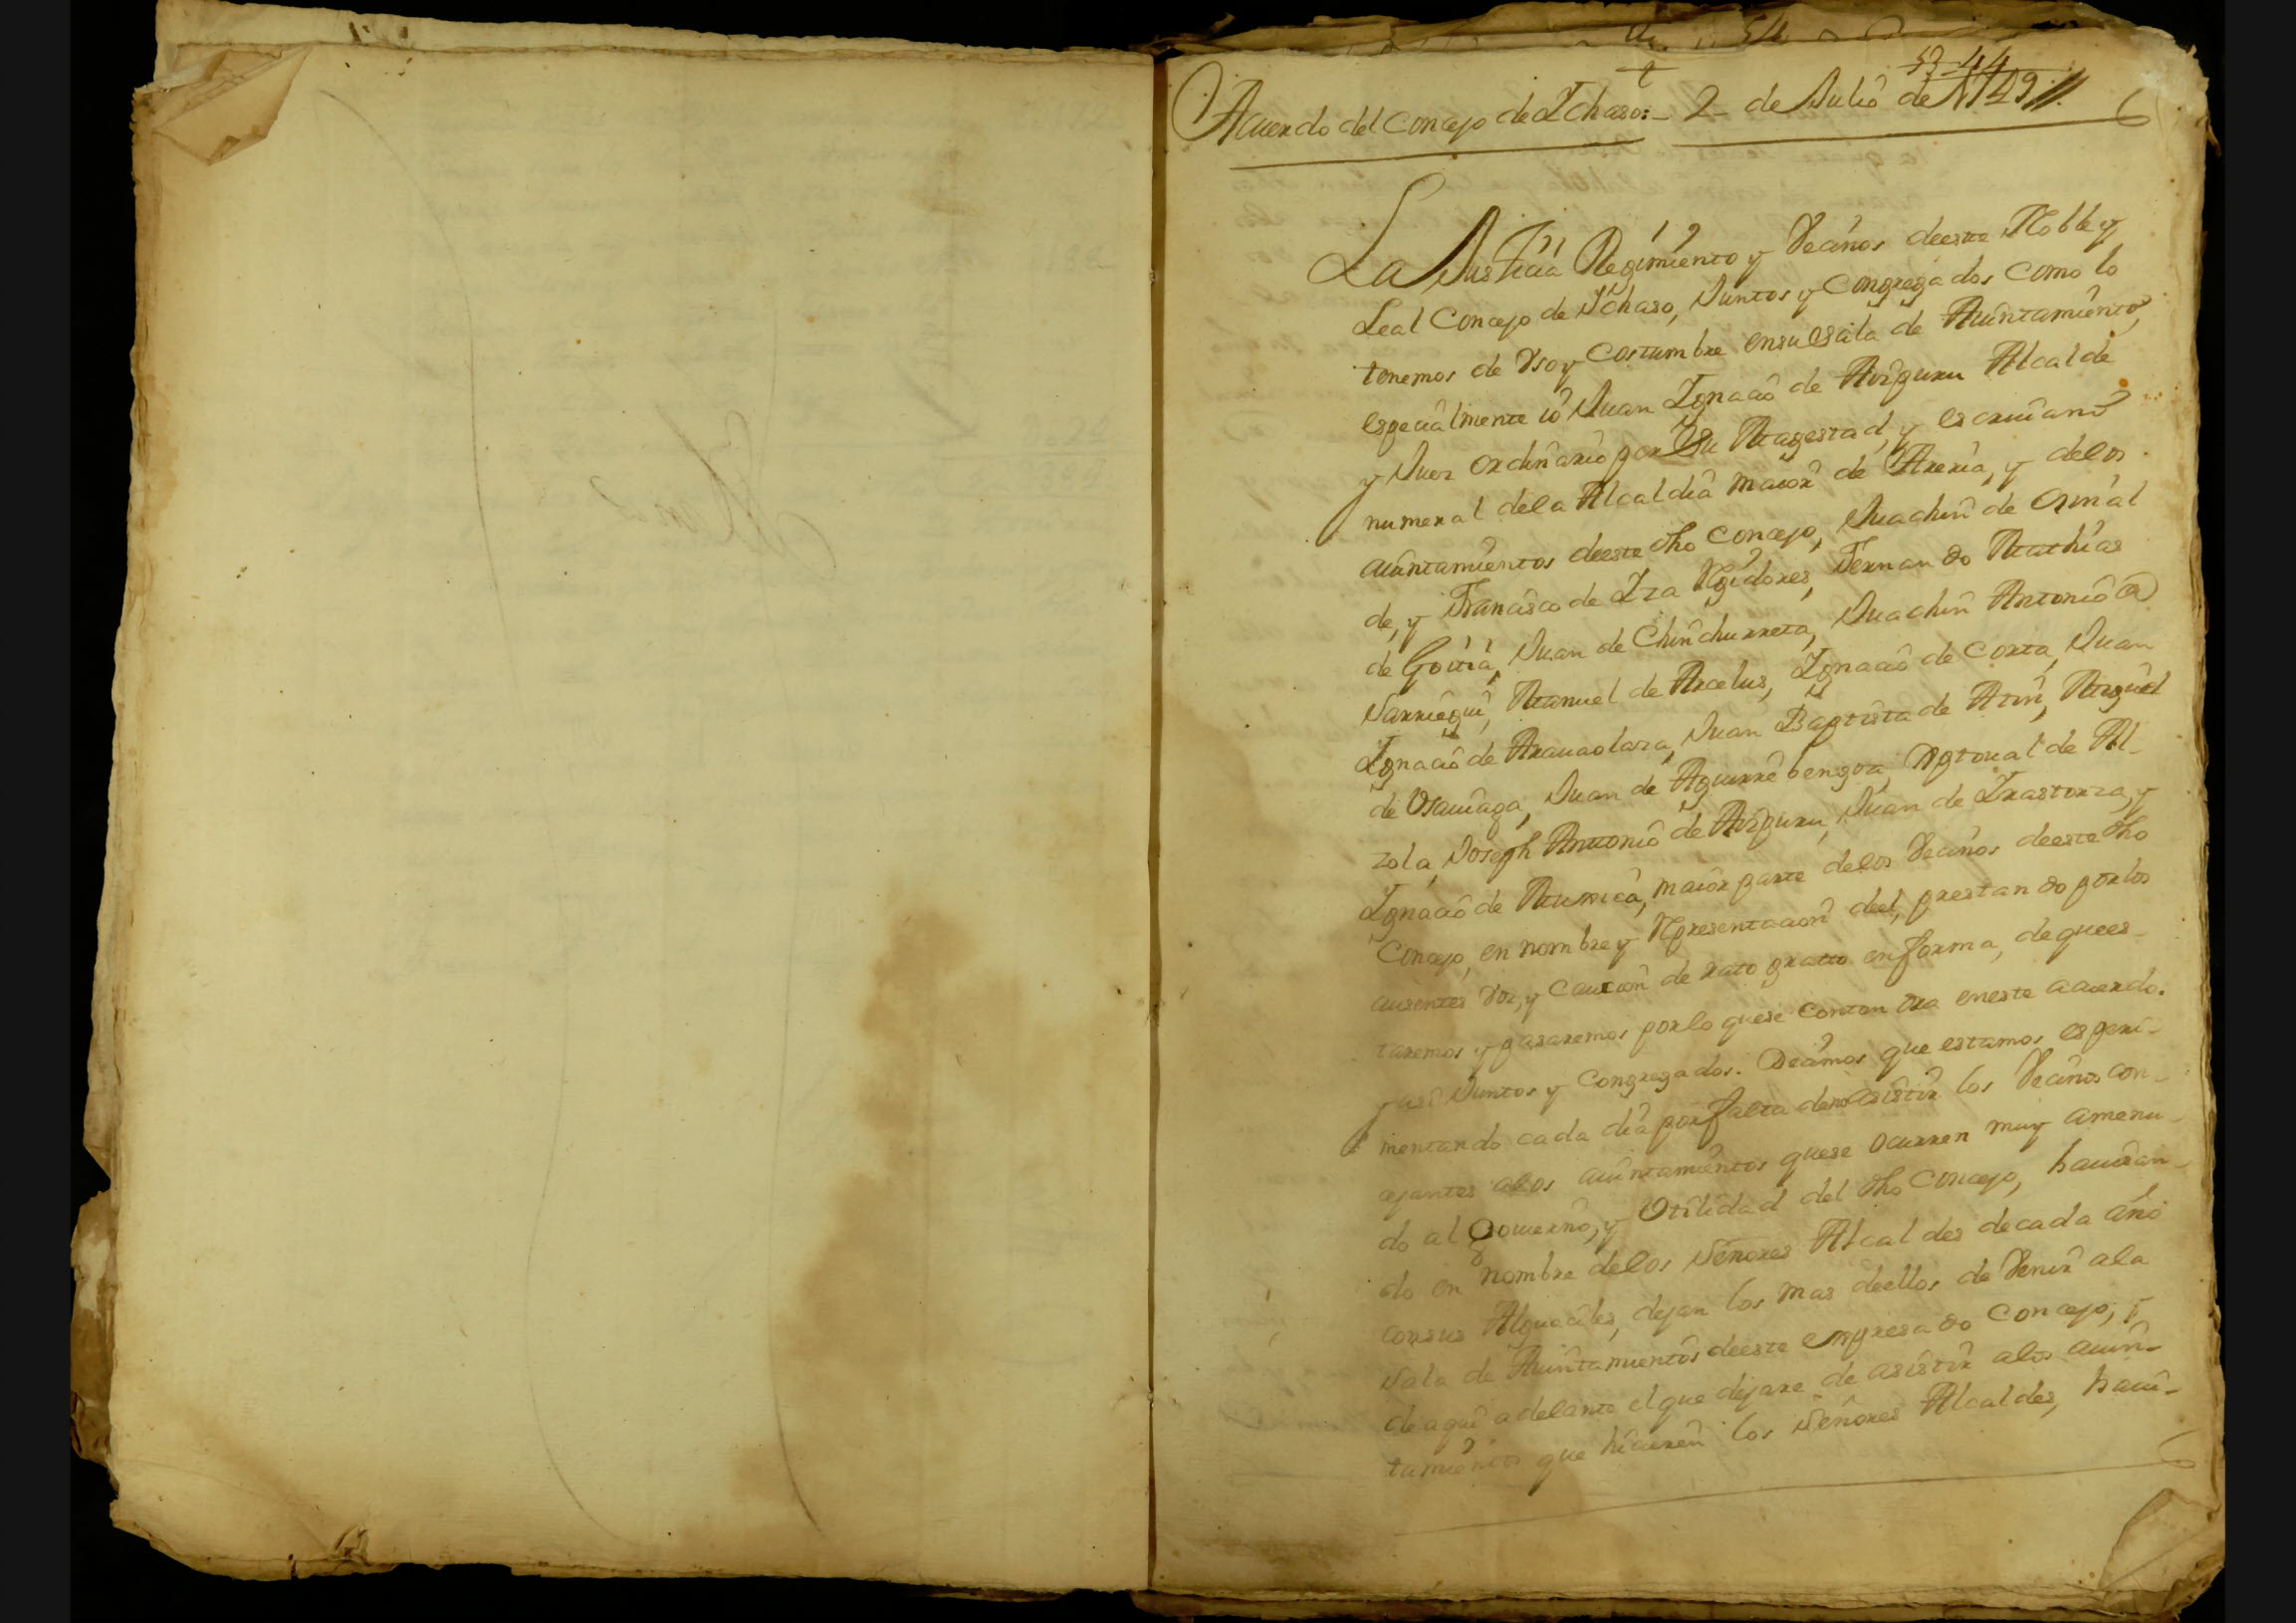 Acuerdo del Concejo de Ichaso:- 2- de Julio de 1749//.
La Justicia Regimiento y Vecinos de este Noble y
Leal Concejo de Ichaso, Juntos y Congregados como lo
tenemos de Vso y Costumbre en su Sala de Aiuntamiento,
especialmente io Juan Ignacio de Aizpuru Alcalde
y Juez ordinario por Su Magestad, y escriuano
numeral dela Alcaldia maior de Areria, y delos
aiuntamientos deeste dho Concejo, Juachin de
de, y Francisco de Iza Rexidores, Fernando Mathias
de Goitia, Juan de Chinchurreta, Juachin Antonio @
Jarriegui, Manuel de Arcelus, Ignacio de Corta, Juan
Ignacio de Arauaolaza, Juan Baptista de Atin, Miguel
de Vsauiaga, Juan de Aguirre bengoa, de Al-
zola, Joseph Antonio de Aizpuru, Juan de Irastorza, y
Ignacio de Muxica, maior parte delos Vecinos deeste dho
Concejo, en nombre y Representacion deel, prestando por los
ausentes Voz, y Caucion de rato gratto en forma, de que es-
taremos y pasaremos por lo que se contendra en este acuerdo.
y asi Juntos y Congregados. Decimos que estamos esperi-
mentando cada dia por falta de no asistir los Vecinos con-
cejantes alos aiuntamientos que se ocurren muy amenu-
do al gouierno, y Vtilidad del dho Concejo, hauisan-
do en nombre delos Señores Alcaldes de cada año
con sus Alguaciles, dejan los mas deellos de Venir ala
Sala de Aiuntamientos deeste espresado Concejo, i
de aqui adelante el que dejare de asistir alos aiun-
tamientos que hicieren los Señores Alcaldes, haui-